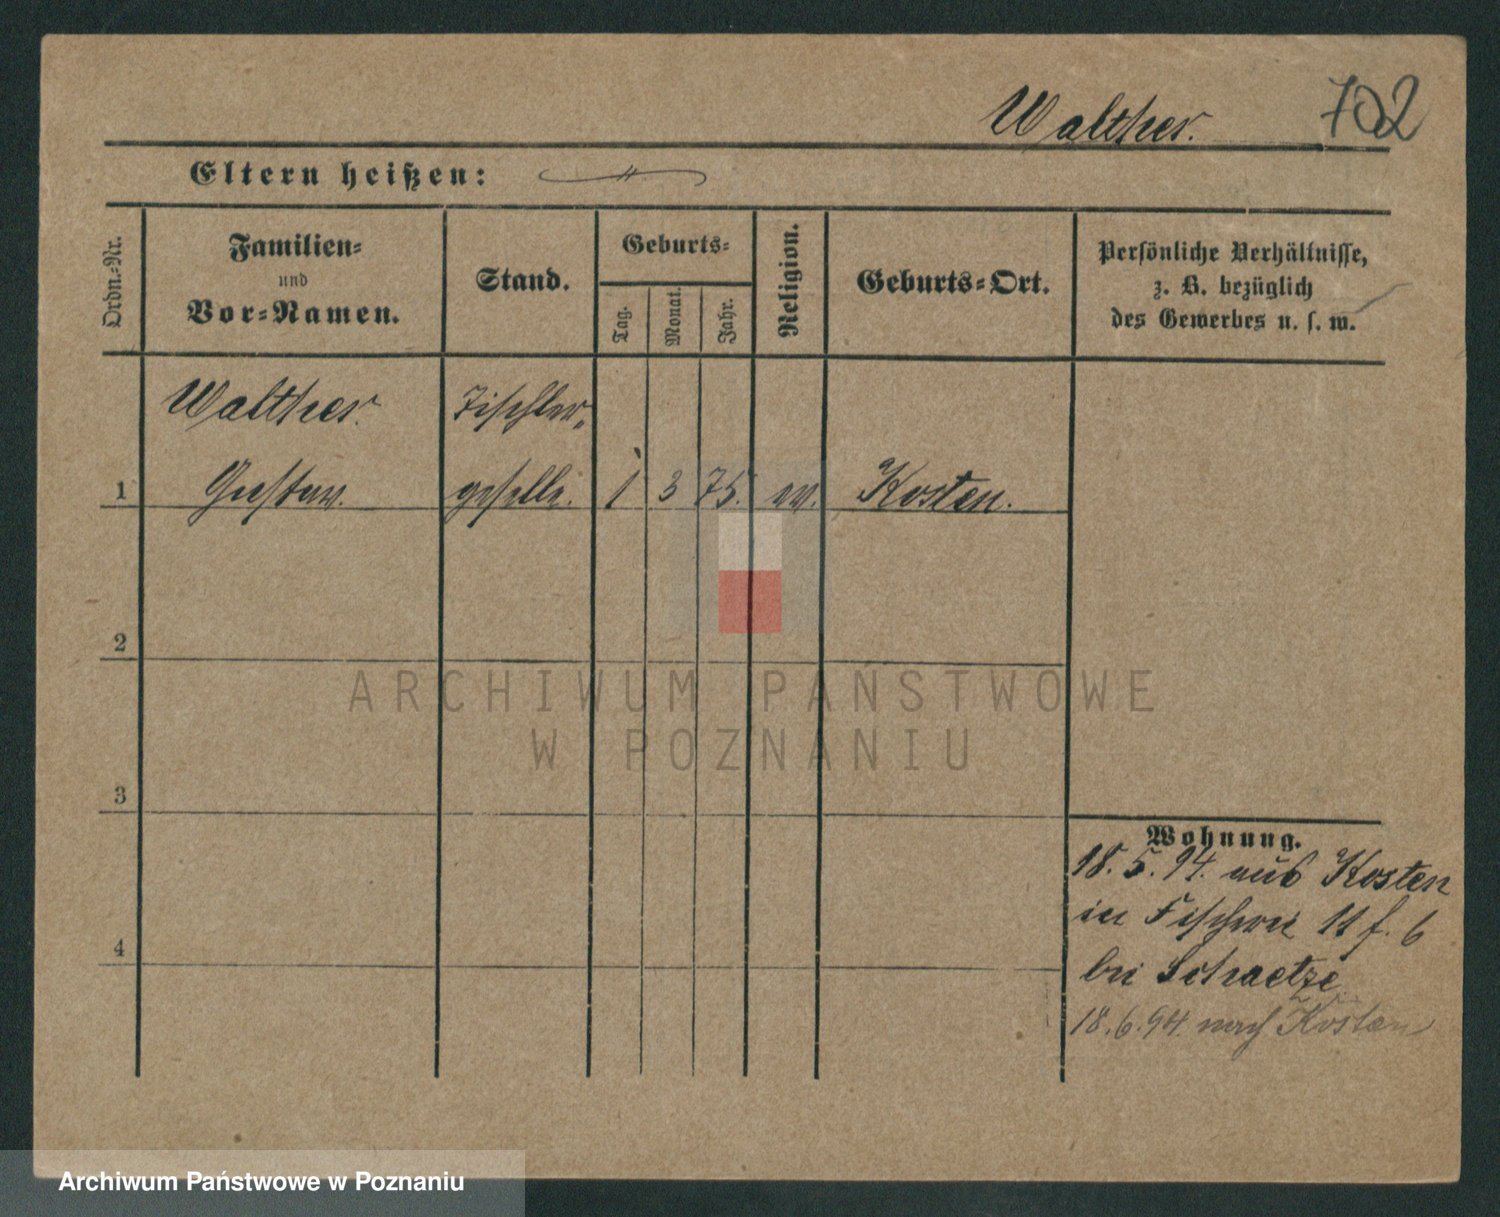 Walther. 702
Eltern heißen: — " —
Ordn.-Nr.
Familien-
und
Vor-Namen.
Stand.
Geburts-
Tag.
Monat.
Jahr.
Religion.
Geburts-Ort.
Persönliche Verhältnisse,
z. B. bezüglich
des Gewerbes u. s. w.
Walther Tischler-
1 Gustav. geselle. 1 3 75. ev. Kosten.
2
ARCHIWUM PAŃSTWOWE
W POZNANIU
3
Wohnung.
18.5.94. aus Kosten
in Fischerei 11 f. 6
4
bei Schaetze
18.6.94. nach Kosten
Archiwum Państwowe w Poznaniu